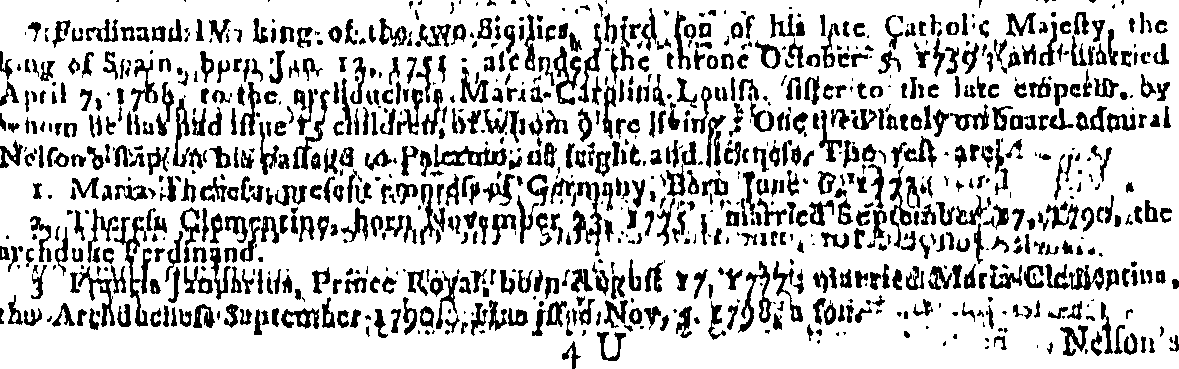 Ferdinand IV. king of the two Sicilies, third ſon of his late Catholic Majeſty, the
king of Spain, born Jan. 12, 1751; aſcended the throne October 5, 1759; and married
April 7, 1768, to the archducheſs Maria Carolina Louiſa, ſiſter to the late emperor, by
whom he has had iſſue 15 children, of whom 9 are living: One died lately on board admiral
Nelſon's ſhip on his paſſage to Palermo, of fright and ſickneſs. The reſt are,
1. Maria Thereſa, preſent empreſs of Germany, Born June 6, 1772.
2. Thereſa Clementine, born November 23, 1775; married September 17, 1790, the
archduke Ferdinand.
3 Francis Januarius, Prince Royal, born Auguſt 17, 1777; married Maria Clementina,
the Archducheſs September 1790. Has iſſue Nov. 5. 1798, a ſon
4 U
Nelſon's